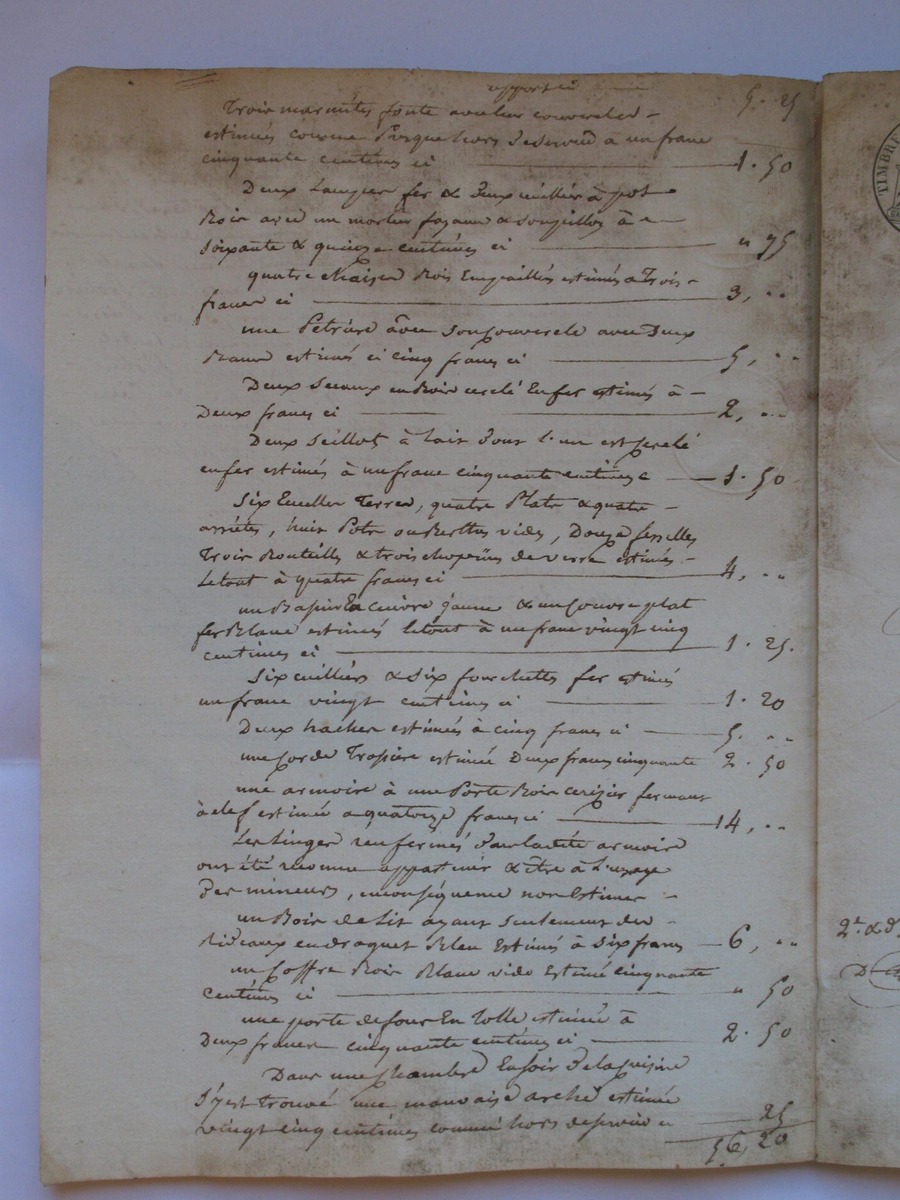 apporté 5. 25
Trois marmites fonte avec leur couvercles
estimés comme presque hors de service a un franc
cinquante centimes ci 1. 50
Deux Lampier fer & deux cuilliers à pot
Bois avec un mortier fayance & soufillos à
soixante & quinze centimes ci " 75
quatre chaises Bois Empaillés estimés a Trois
francs ci 3, ..
une Petrière avec son couvercle avec Deux
estimés ci cinq francs ci 5, ..
Deux Sceaux en Bois cerclé En fer estimés à
Deux francs ci 2, ..
Deux seillots à lait dont l'un est cerclé
en fer estimés à un franc cinquante centimes 1. 50
Six Ecuelles Terres, quatre Plats & quatre
assiétes, huit Pots ou Berttes vides, Douze fesselles
Trois Bouteilles & trois chopines de verre estimés
Letout à quatre francs ci 4, ..
un Bassin En cuivre jaune & un couvre plat
fer Blanc estimés letout à un franc vingt cinq
centimes ci 1. 25.
Six cuilliers & Six fourchettes fer estimés
un franc vingt centimes ci 1. 20
Deux haches estimées à cinq francs ci 5. ..
une corde estimée Deux francs cinquante 2. 50
une armoire à une Porte Bois cerizier fermant
à clef estimée a quatorze francs ci 14, ..
Les Linges renfermés dans ladite armoire
ont été reconnu appartenir & être à l'usage
Des mineurs, en conséquence non Estimer
un Bois de Lit ayant seulement des
Rideaux en droguet Bleu Estimés à six francs 6, ..
un coffre Bois Blanc vide Estimé cinquante
centimes ci " 50
une porte de four En tolle estimée à
Deux francs cinquante centimes ci 2. 50
Dans une chambre En soir de la cuisine
s'y est trouvé une mauvaise arche estimée
vingt cinq centimes comme hors de service ci 25
56, 20
TIMBRE